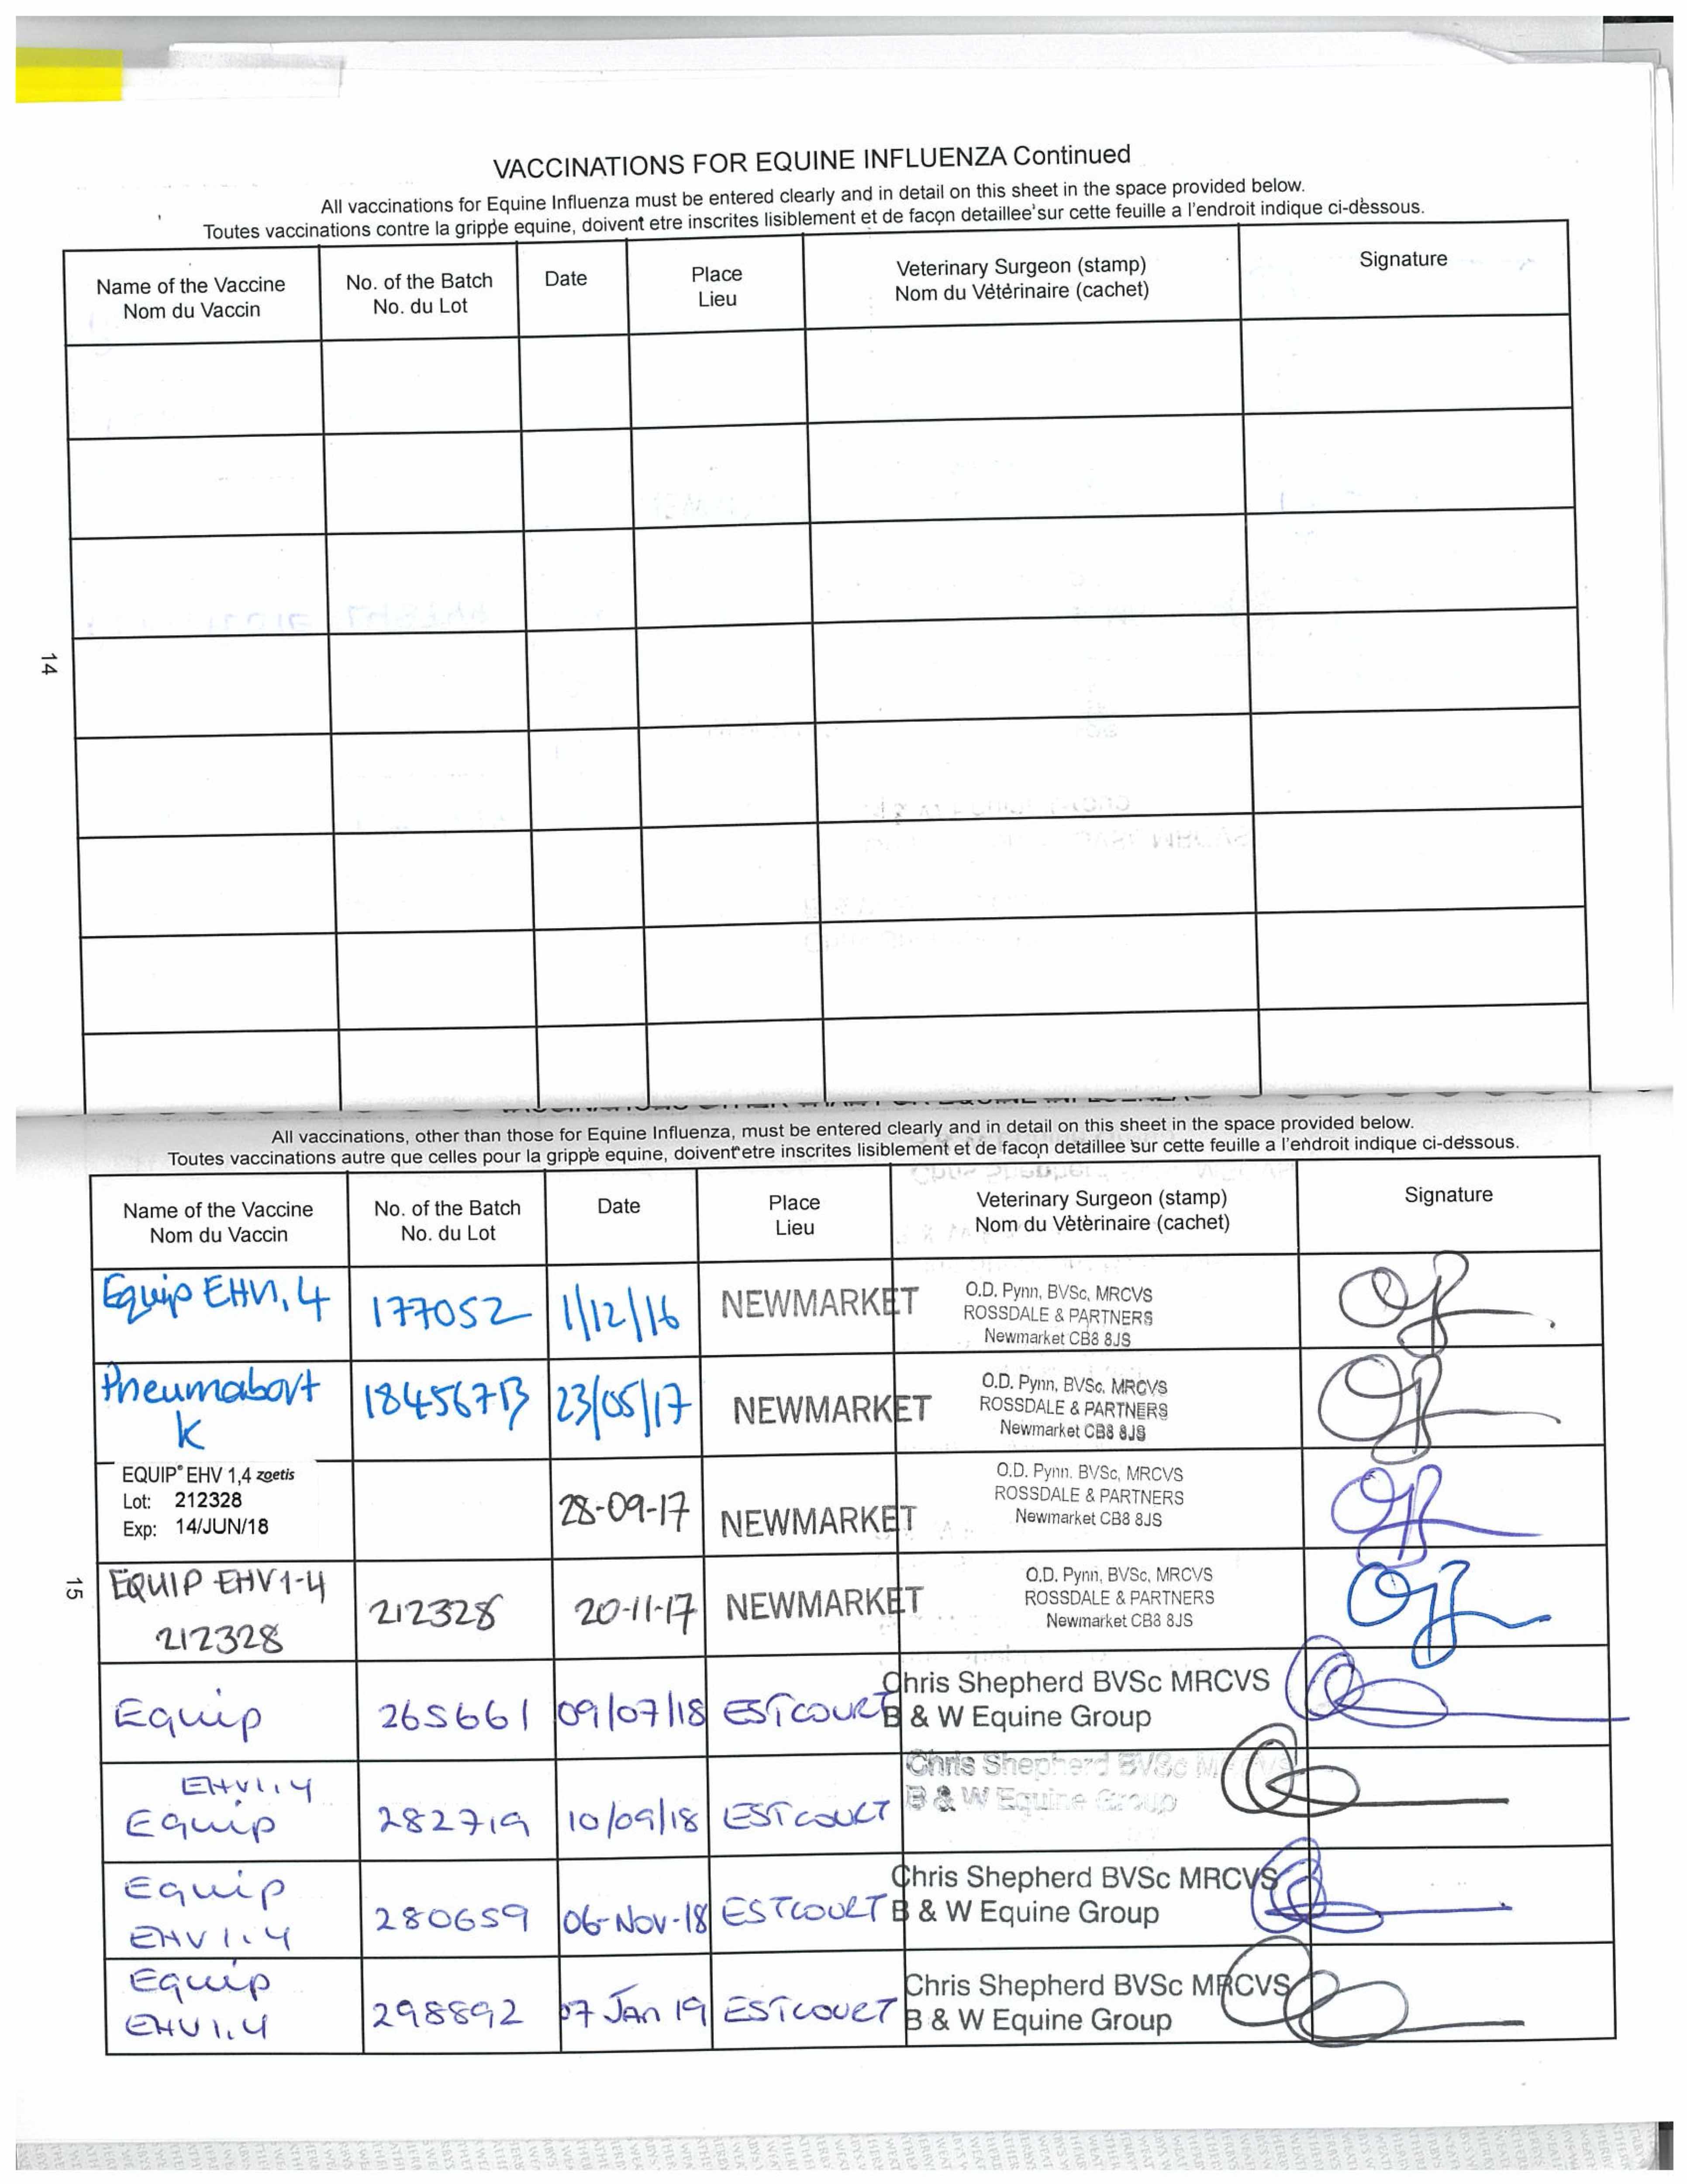 VACCINATIONS FOR EQUINE INFLUENZA Continued
All vaccinations for Equine Influenza must be entered clearly and in detail on this sheet in the space provided below.
Toutes vaccinations contre la grippe equine, doivent etre inscrites lisiblement et de façon detaillee sur cette feuille a l'endroit indique ci-dessous.
Name of the Vaccine No. of the Batch Date Place Veterinary Surgeon (stamp) Signature
Nom du Vaccin No. du Lot Lieu Nom du Vétérinaire (cachet)
14
All vaccinations, other than those for Equine Influenza, must be entered clearly and in detail on this sheet in the space provided below.
Toutes vaccinations autre que celles pour la grippe equine, doivent etre inscrites lisiblement et de facon detaillee sur cette feuille a l'endroit indique ci-dessous.
Name of the Vaccine No. of the Batch Date Place Veterinary Surgeon (stamp) Signature
Nom du Vaccin No. du Lot Lieu Nom du Vètèrinaire (cachet)
Equip EHV1,4 177052 1/12/16 NEWMARKET O.D. Pynn, BVSc, MRCVS
ROSSDALE & PARTNERS
Newmarket CB8 8JS
Pneumabort 184567B 23/05/17 NEWMARKET O.D. Pynn, BVSc, MRCVS
K ROSSDALE & PARTNERS
Newmarket CB8 8JS
EQUIP® EHV 1,4 zoetis
Lot: 212328
Exp: 14/JUN/18
28-09-17 NEWMARKET O.D. Pynn, BVSc, MRCVS
ROSSDALE & PARTNERS
Newmarket CB8 8JS
15
EQUIP EHV1-4
212328
212328 20-11-17 NEWMARKET O.D. Pynn, BVSc, MRCVS
ROSSDALE & PARTNERS
Newmarket CB8 8JS
Equip 265661 09/07/18 ESTCOURT Chris Shepherd BVSc MRCVS
B & W Equine Group
EHV1,4
Equip 282719 10/09/18 ESTCOURT Chris Shepherd BVSc MRCVS
B & W Equine Group
Equip
EHV 1,4 280659 06-Nov-18 ESTCOURT Chris Shepherd BVSc MRCVS
B & W Equine Group
Equip
EHV 1,4 298892 07 JAN 19 ESTCOURT Chris Shepherd BVSc MRCVS
B & W Equine Group